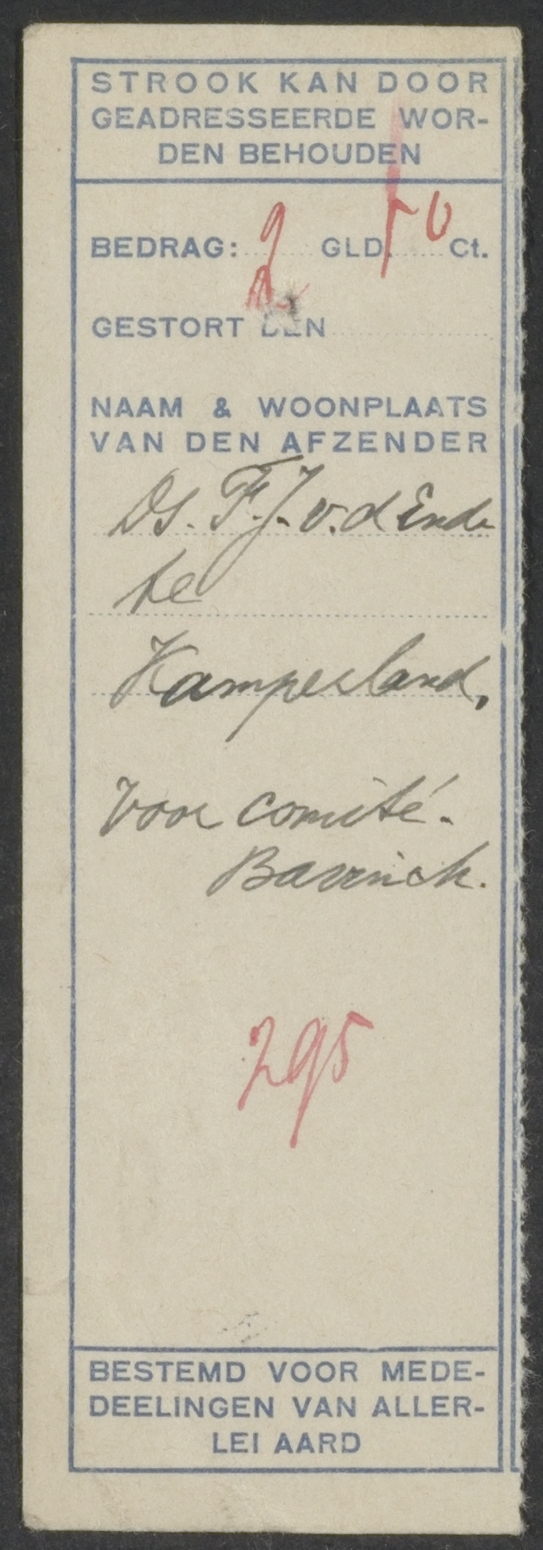 STROOK KAN DOOR
GEADRESSEERDE WOR-
DEN BEHOUDEN
BEDRAG: 2 GLD. 50 Ct.
GESTORT DEN
NAAM & WOONPLAATS
VAN DEN AFZENDER
Ds. F. J. v. d Ende
te
Kamperland,
Voor comité-
Bavinck.
295
BESTEMD VOOR MEDE-
DEELINGEN VAN ALLER-
LEI AARD